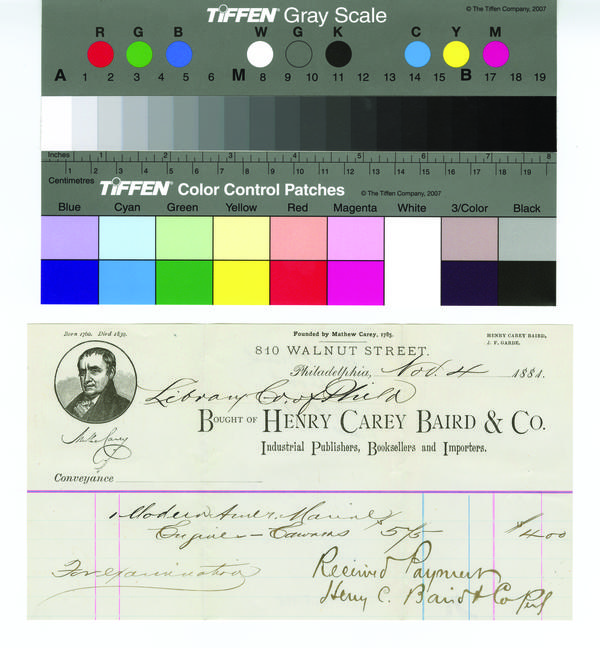 TiFFEN® Gray Scale
© The Tiffen Company, 2007
R G B W G K C Y M
A 1 2 3 4 5 6 M 8 9 10 11 12 13 14 15 B 17 18 19
Inches 1 2 3 4 5 6 7 8
Centimetres 1 2 3 4 5 6 7 8 9 10 11 12 13 14 15 16 17 18 19
TiFFEN® Color Control Patches © The Tiffen Company, 2007
Blue Cyan Green Yellow Red Magenta White 3/Color Black
Born 1760. Died 1839.
Founded by Mathew Carey, 1785.
HENRY CAREY BAIRD,
J. F. GARDE.
810 WALNUT STREET.
Philadelphia, Nov. 4 1881.
Library Co. of Phild
BOUGHT OF HENRY CAREY BAIRD & CO.
Mathew Carey
Industrial Publishers, Booksellers and Importers.
Conveyance
1 Modern Amer. Marine
Engine - Edwards $5/5 $4 00
For examination
Received Payment
Henry C. Baird & Co